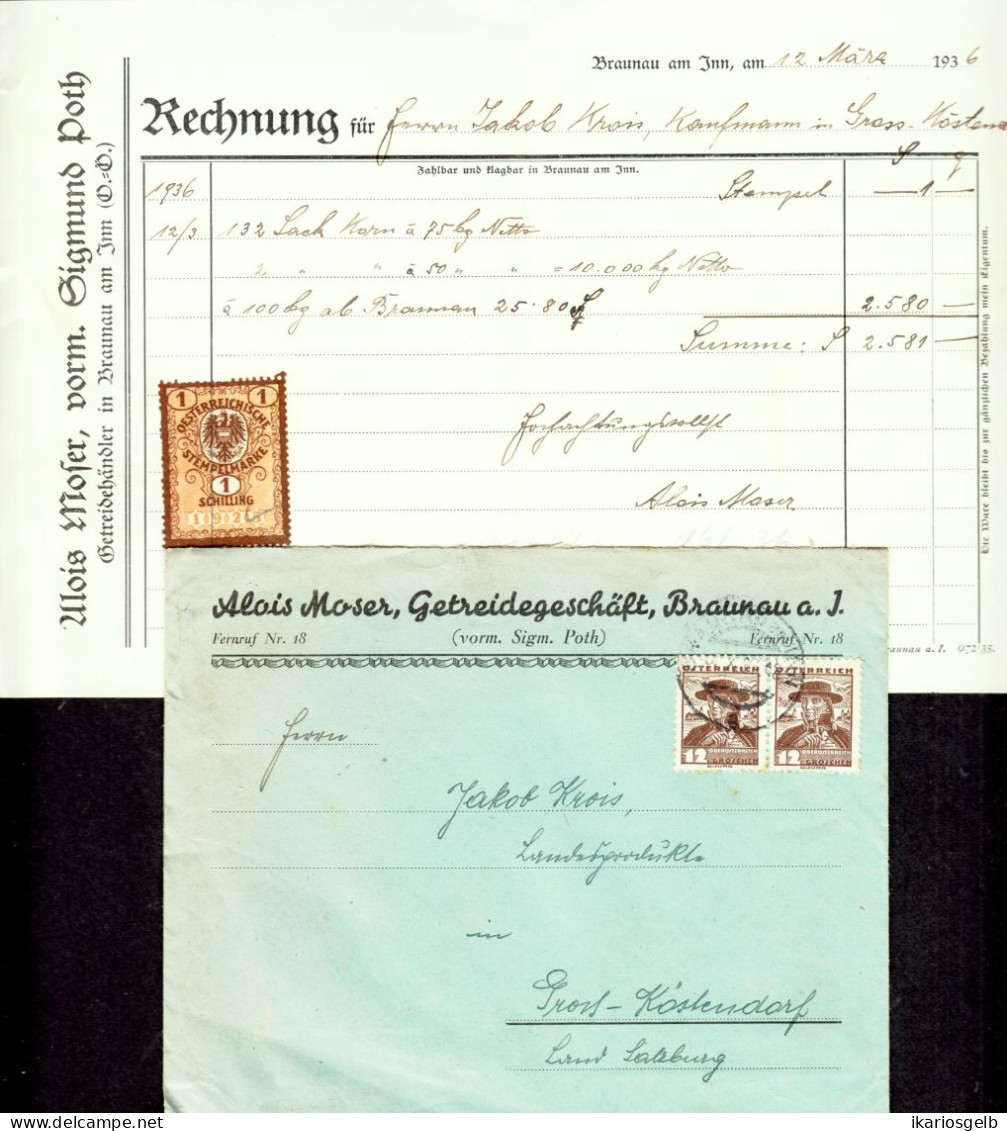 Alois Moser, vorm. Sigmund Poth
Getreidehändler in Braunau am Inn (O.=Ö.)
Braunau am Inn, am 12 März 1936
Rechnung für Herrn Jakob Krois, Kaufmann in Gross-Köstend
Zahlbar und klagbar in Braunau am Inn.
S g
1936 Stempel — 1 —
12/3 132 Sack Korn à 75 kg Netto
2 " " à 50 " " = 10.000 kg Netto
à 100 kg ab Braunau 25·80 2.580 —
Summe: S 2.581 —
Hochachtungsvollst
Alois Moser
Die Ware bleibt bis zur gänzlichen Bezahlung mein Eigentum.
1 1
OESTERREICHISCHE
STEMPELMARKE
1
SCHILLING
Alois Moser, Getreidegeschäft, Braunau a. I.
Fernruf Nr. 18 (vorm. Sigm. Poth) Fernruf Nr. 18
raunau a. I. 972·35.
ÖSTERREICH ÖSTERREICH
OBERÖSTERREICH OBERÖSTERREICH
12 GROSCHEN 12 GROSCHEN
Herrn
Jakob Krois,
Landesprodukte
in
Gross-Köstendorf
Land Salzburg
delcampe.net
ikariosgelb